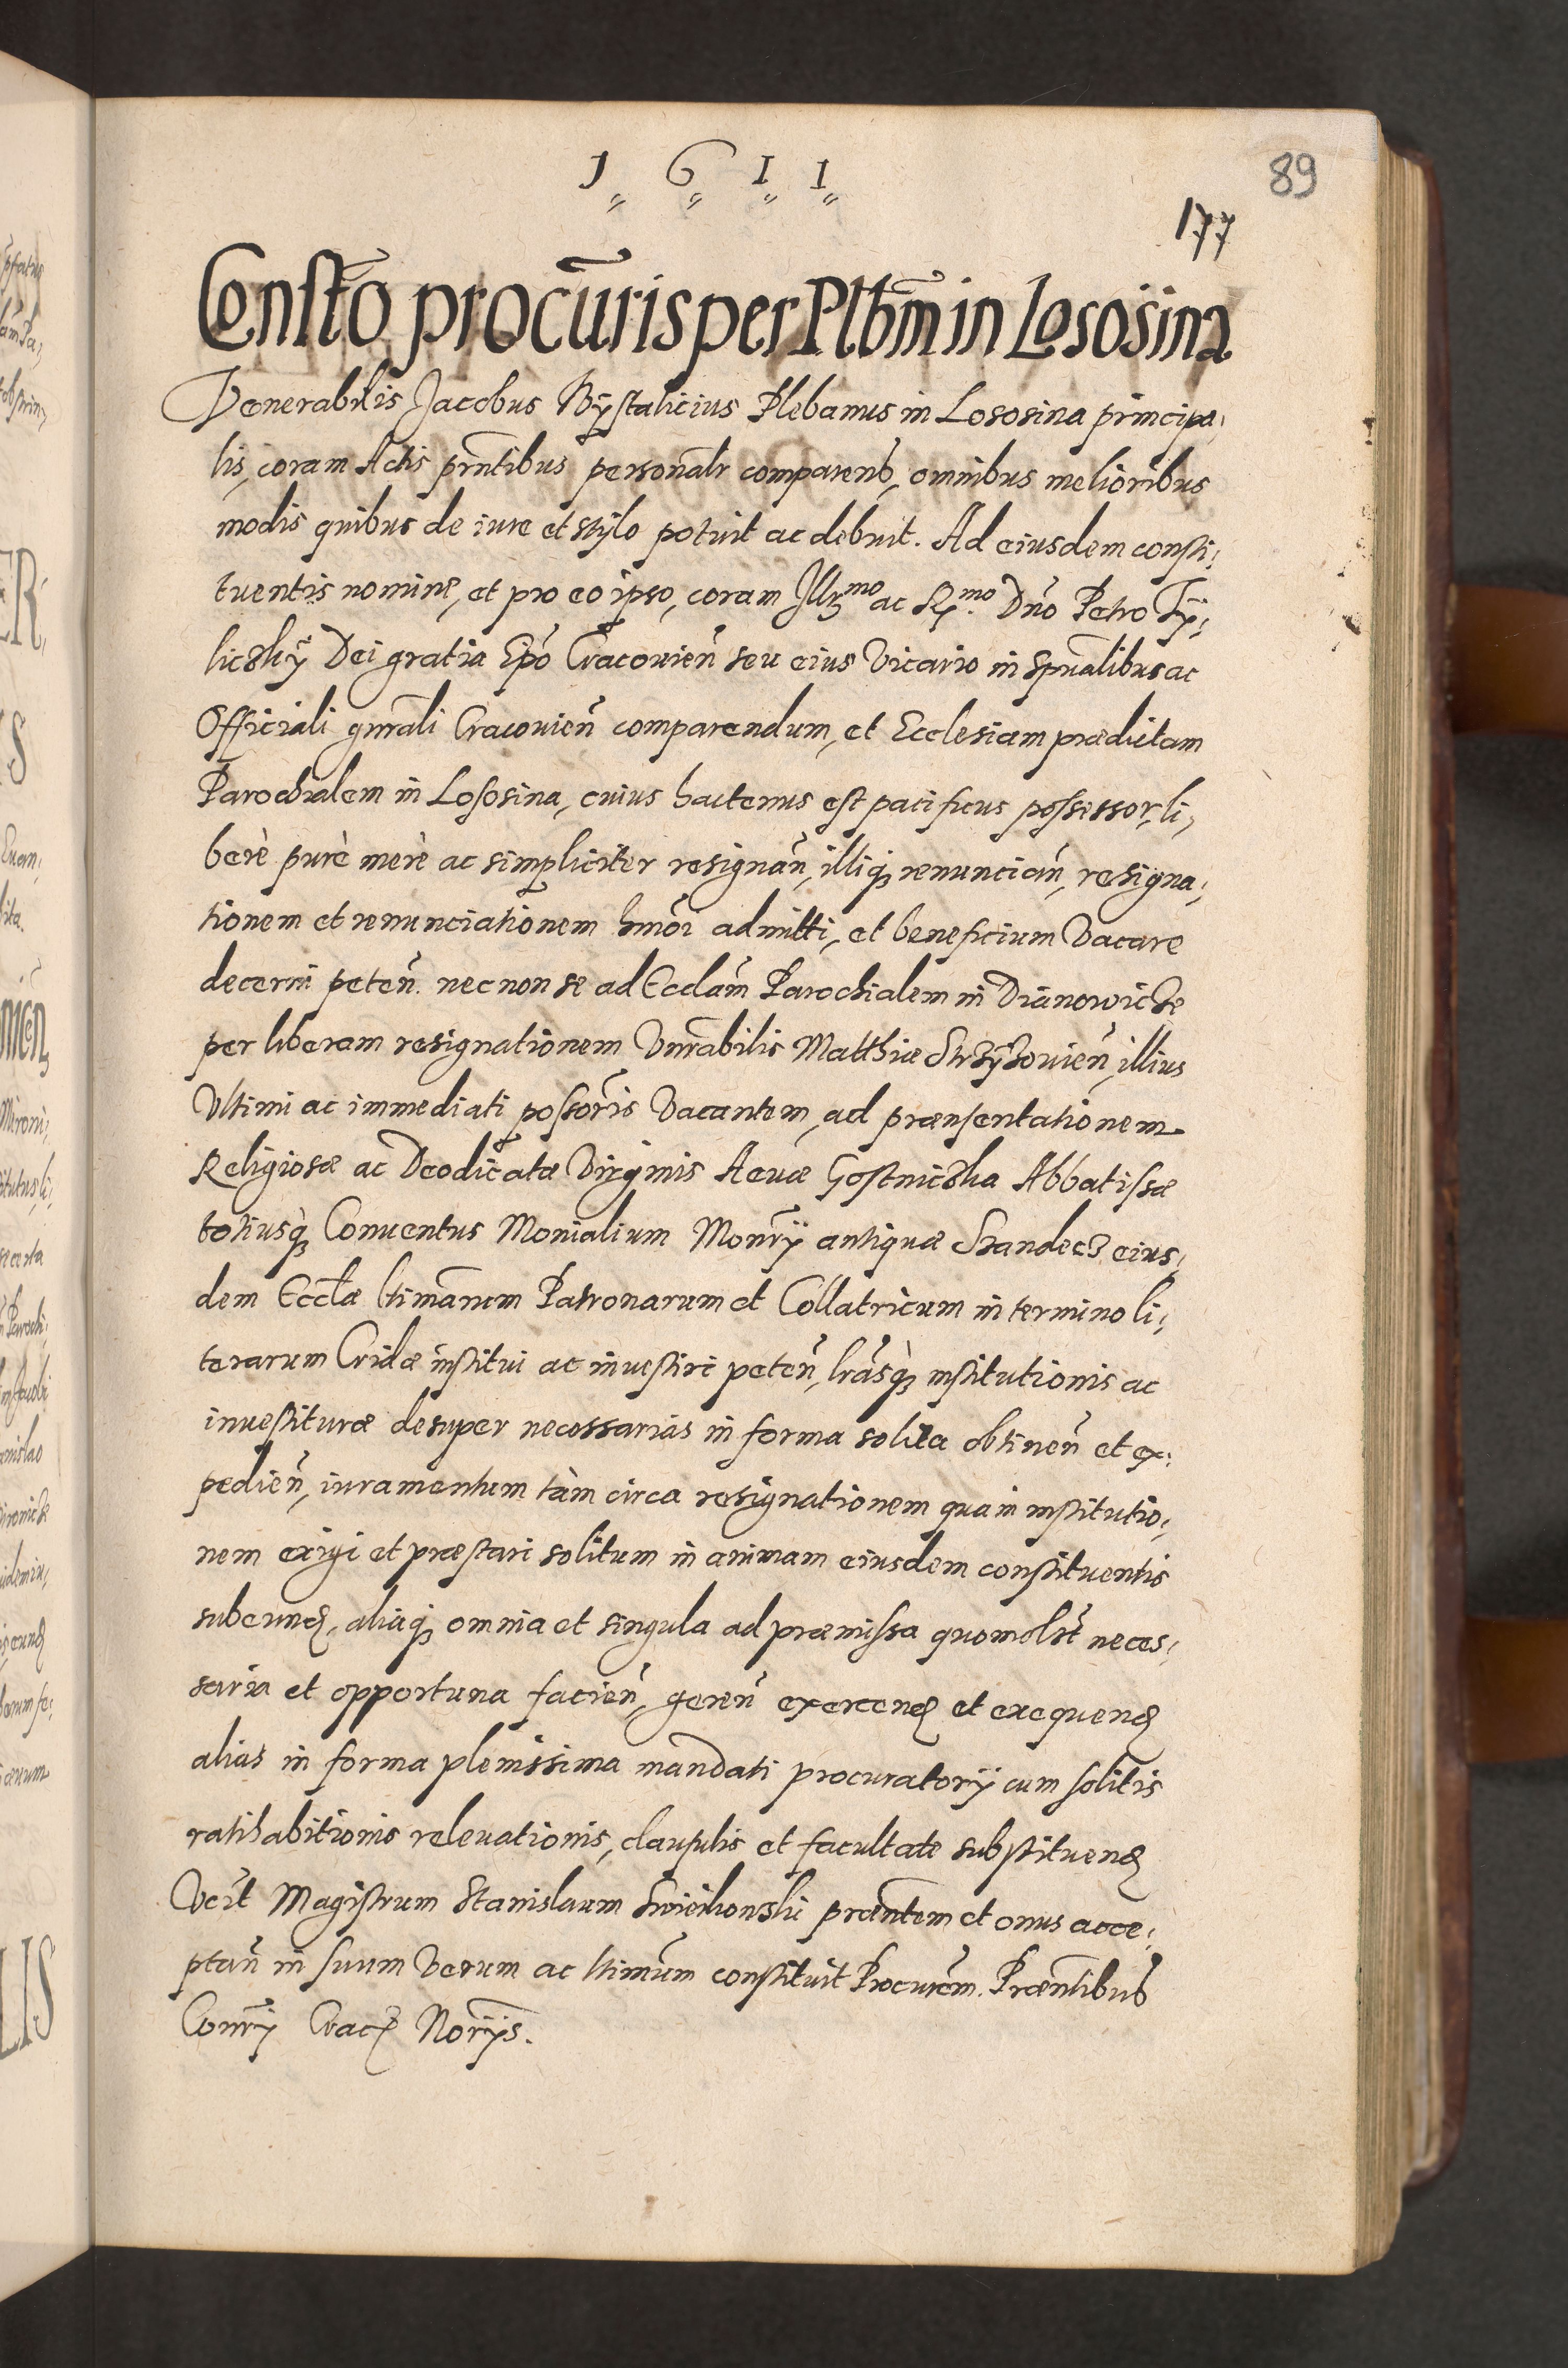 1611
89
177
Constō procūris per Plbm̄ in Lososina
Venerabilis Jacobus Bÿstalicius Plebanus in Lososina principa,
lis, coram Actis prn̄tibus personalr comparens, omnibus melioribus
modis quibus de iure et stÿlo potuit ac debuit. Ad eiusdem consti,
tuentis nomine, et pro eo ipso, coram Illmo ac Rmo Dn̄o Petro Tÿ,
lickÿ Dei gratia Epō Cracovien̄ seu eius Vicario in Spnalibus ac
Officiali gnrāli Cracouien̄ comparendum, et Ecclesiam prædictam
Parochialem in Lososina, cuius hactenus est pacificus possessor, li,
berè purè merè ac simpliciter resignan̄, illiq; renuncian̄, resigna,
tionem et renunciationem hmōi admitti, et beneficium Vacare
decerni peten̄. necnon se ad Ecclām Parochialem in
per liberam resignationem Vnrābilis Matthiæ illius
Vltimi ac immediati possoris Vacantem, ad præsentationem
Religiosæ ac Deodicatæ Virginis Abbatissæ
totiusq; Conuentus Monialium Monrÿ antiquæ Sandecz eius,
dem Ecclæ ltimarum Patronarum et Collatricum in termino li,
terarum Cridæ institui ac inuestiri peten̄, lrāsq; institutionis ac
inuestituræ desuper necessarias in forma solita obtinen̄ et ex,
pedien̄, iuramentum tàm circa resignationem quam institutio,
nem exigi et præstari solitum in animam eiusdem constituentis
subeund, aliaq; omnia et singula ad præmissa quomolt neces,
saria et opportuna facien̄, geren̄ exercend et exequend
alias in forma plenissima mandati procuratorÿ cum solitis
ratihabitionis releuationis, clausulis et facultate substituend
Vert Magistrum Stanislaum præntem et onus acce,
ptan̄ in suum Verum ac ltimum constituit Procurem. Præntibus
Conrÿ Crac Norÿs.